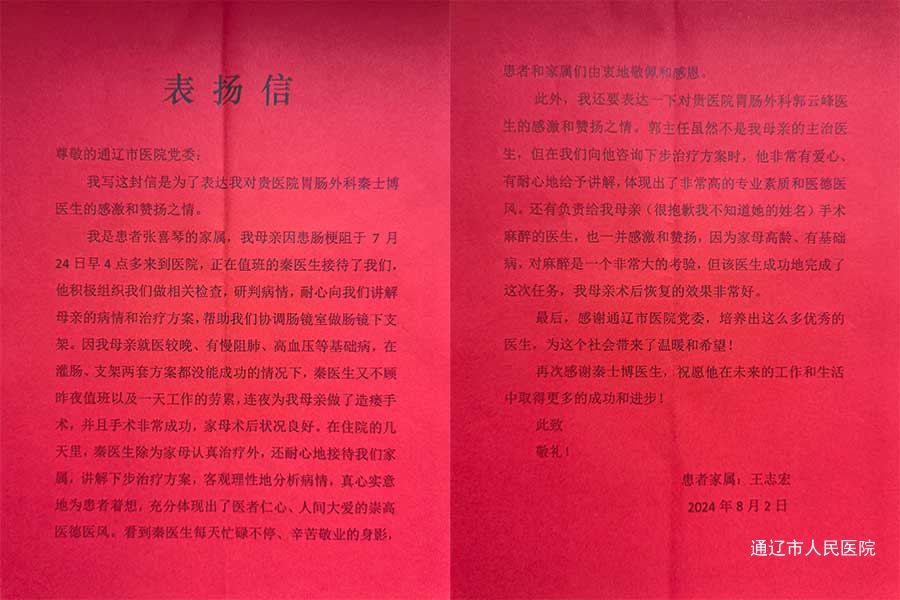 表扬信
尊敬的通辽市医院党委：
我写这封信是为了表达我对贵医院胃肠外科秦士博
医生的感激和赞扬之情。
我是患者张喜琴的家属，我母亲因患肠梗阻于 7 月
24 日早 4 点多来到医院，正在值班的秦医生接待了我们，
他积极组织我们做相关检查，研判病情，耐心向我们讲解
母亲的病情和治疗方案，帮助我们协调肠镜室做肠镜下支
架。因我母亲就医较晚、有慢阻肺、高血压等基础病，在
灌肠、支架两套方案都没能成功的情况下，秦医生又不顾
昨夜值班以及一天工作的劳累，连夜为我母亲做了造瘘手
术，并且手术非常成功，家母术后状况良好。在住院的几
天里，秦医生除为家母认真治疗外，还耐心地接待我们家
属，讲解下步治疗方案，客观理性地分析病情，真心实意
地为患者着想，充分体现出了医者仁心、人间大爱的崇高
医德医风。看到秦医生每天忙碌不停、辛苦敬业的身影，
患者和家属们由衷地敬佩和感恩。
此外，我还要表达一下对贵医院胃肠外科郭云峰医
生的感激和赞扬之情。郭主任虽然不是我母亲的主治医
生，但在我们向他咨询下步治疗方案时，他非常有爱心、
有耐心地给予讲解，体现出了非常高的专业素质和医德医
风。还有负责给我母亲（很抱歉我不知道她的姓名）手术
麻醉的医生，也一并感激和赞扬，因为家母高龄、有基础
病，对麻醉是一个非常大的考验，但该医生成功地完成了
这次任务，我母亲术后恢复的效果非常好。
最后，感谢通辽市医院党委，培养出这么多优秀的
医生，为这个社会带来了温暖和希望！
再次感谢秦士博医生，祝愿他在未来的工作和生活
中取得更多的成功和进步！
此致
敬礼！
患者家属：王志宏
2024 年 8 月 2 日
通辽市人民医院